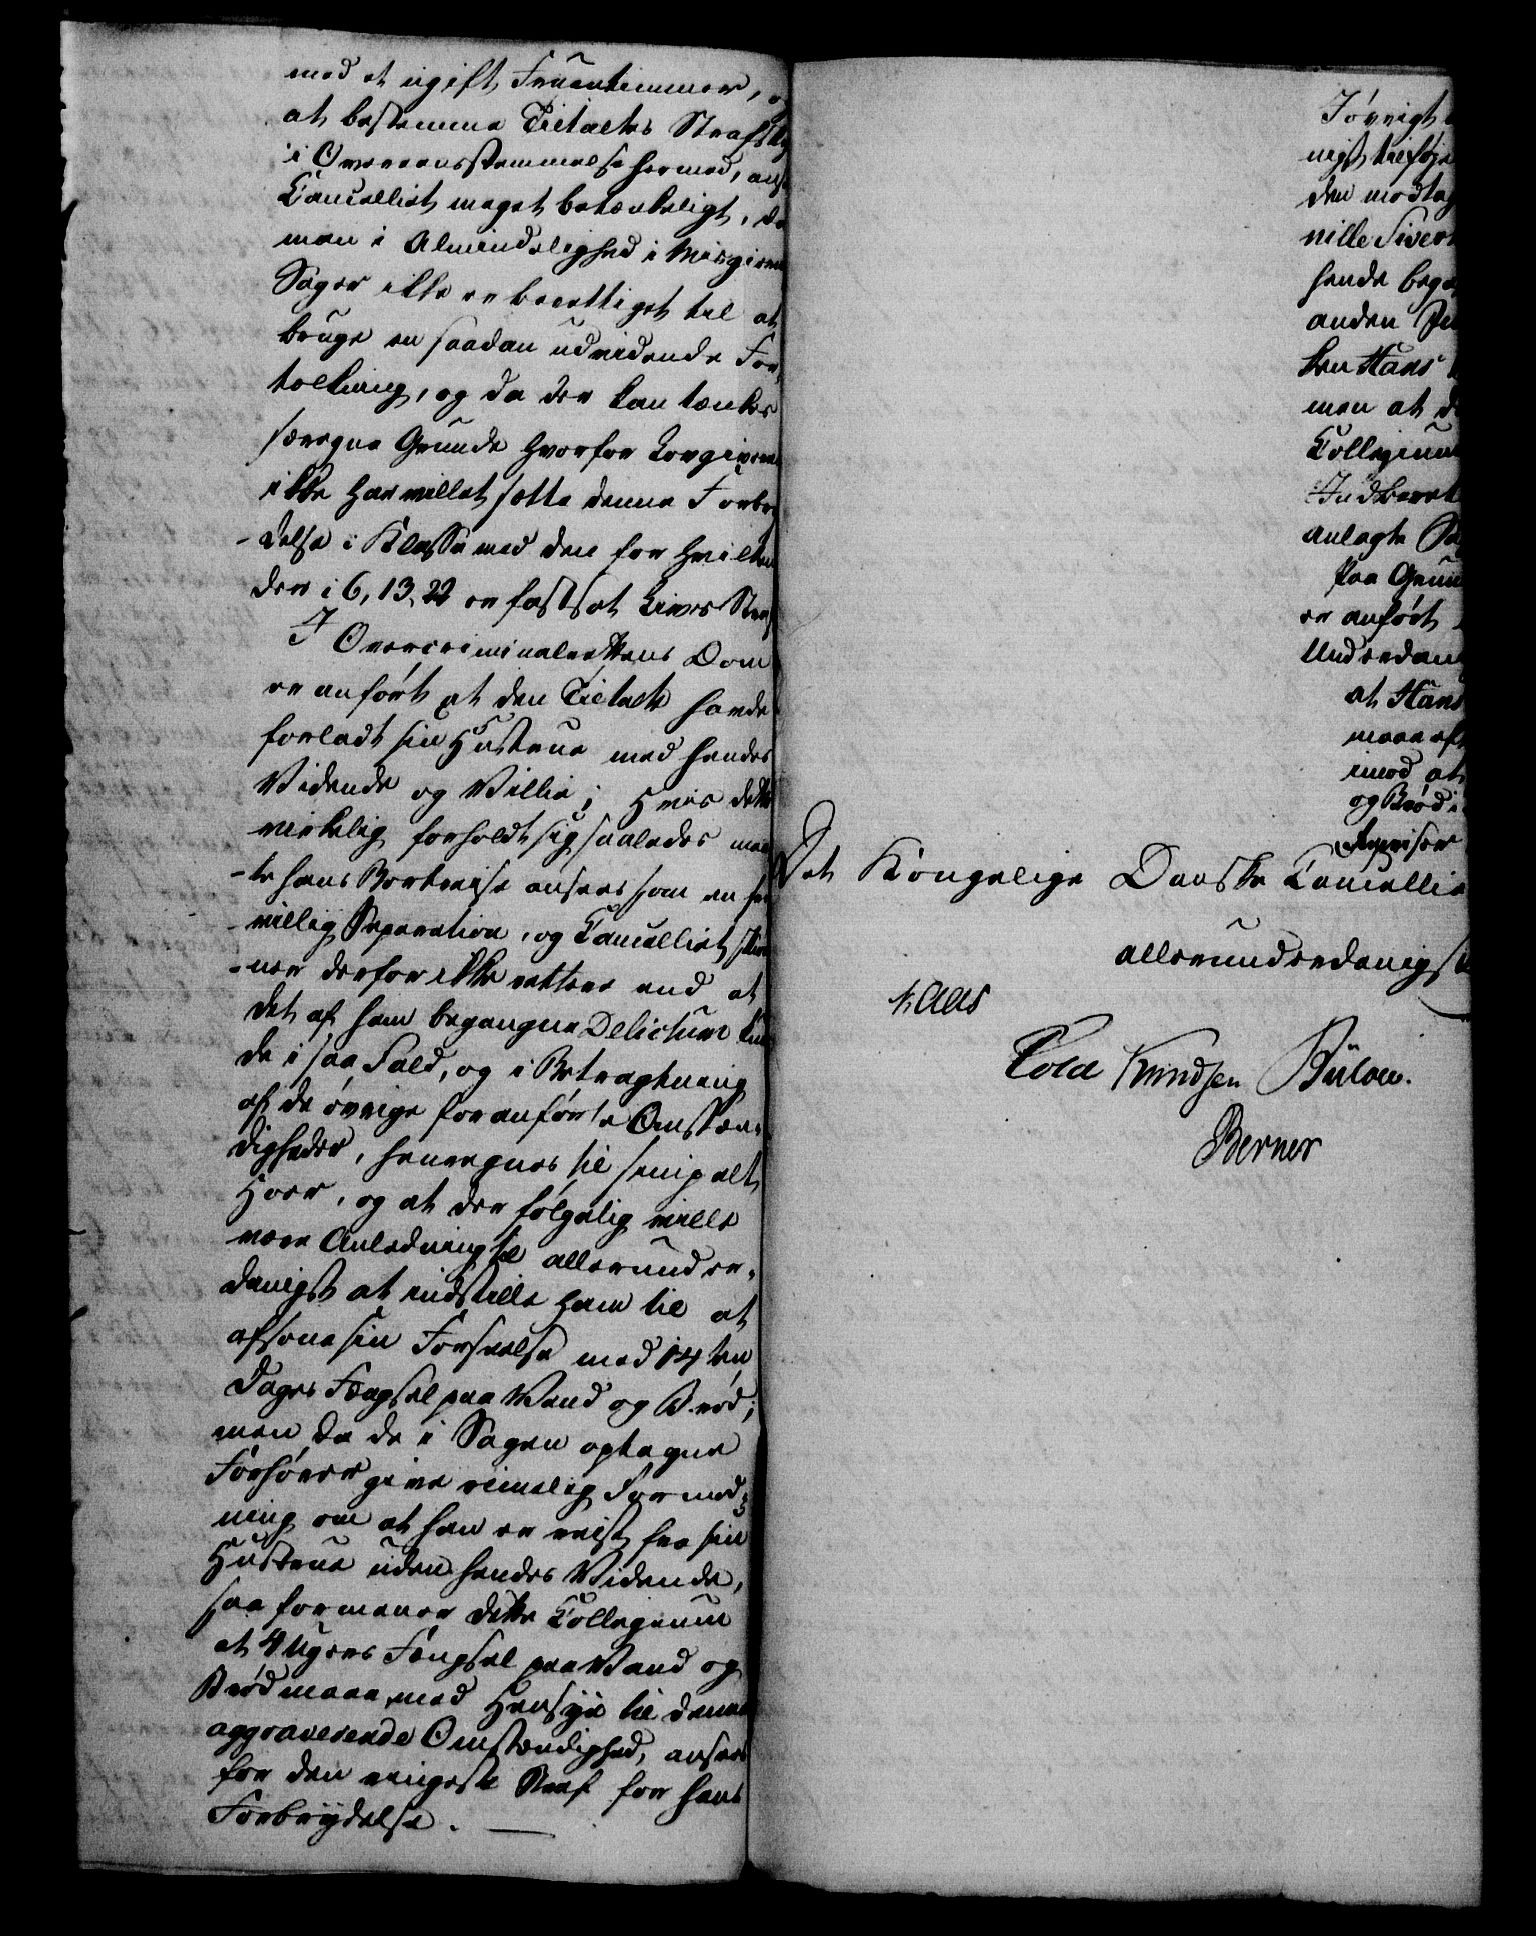 med et ugift Fruentimmer, og
at bestemme Tiltaltes Straf
i Overeensstemmelse hermed, anse
Cancelliet meget betænkeligt, da
man i Almindelighed i Misgiernings
Sager ikke er berettiget til at
bruge en saadan udvidende For¬
tolkning, og da der kan tænkes
særegne Grunde hvorfor Lovgiveren
ikke har villet sætte denne Forbry
-delse i Klasse med den for hvilken
der i 6, 13, 22 er fastsat Livs Straf
I Overcriminalrettens Dom
er anført at den Tiltalte havde
forladt sin Hustrue med hendes
Vidende og Villie; Hvis dette
virkelig forholdt sig saaledes maat
-te hans Bortreise ansees som en fri
-villig Separation, og Cancelliet skiøn
-ner derfor ikke rettere end at
det af ham begangne Delictum kun
de i saa Fald, og i Betragtning
af de øvrige foranførte Omstæn¬
digheder, henregnes til simpelt
Hoer, og at der følgelig ville
være Anledning til allerunder¬
danigst at indstille ham til at
afsone sin Forseelse med 14 ten
Dages Fængsel paa Vand og Brød;
men da de i Sagen optagne
Forhører give rimelig Formod¬
ning om at han er reist fra sin
Hustrue uden hendes Vidende,
saa formener dette Collegium
at 4 Ugers Fængsel paa Vand og
Brød maae, med Hensyn til denne
aggraverende Omstændighed, ansees
for den ringeste Straf for hans
Forbrydelse. —
Iøvrigt
nigst tilføje
den modtag
nille Sivert
hende begæ
anden
ken Hans
men at d
Collegium
Indberet
anlagte Sa
Paa Grun
er anført
Underdan
at Hans
maae aft
imod at
og Brød i
Det Kongelige Danske Cancellie
allerunderdanigst
Kaas
Cold Knudsen Bülow.
Berner